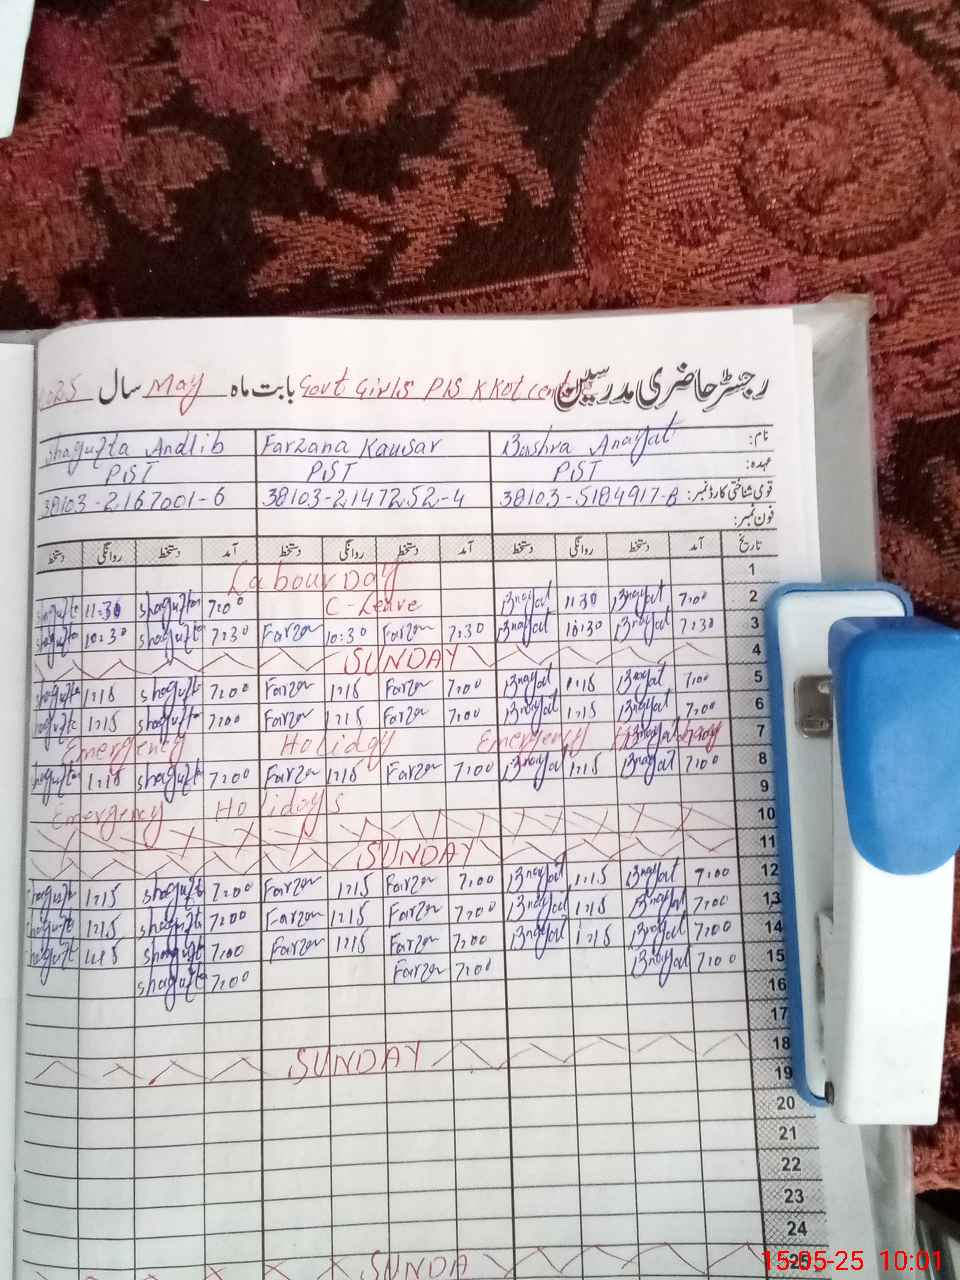 رجسٹر حاضری مدرسین Govt Girls P/S K Kot بابت ماہ May سال 2025
نام: Bushra Anayat Farzana Kausar Shagufta Andlib
عہدہ: PST PST PST
قومی شناختی کارڈ نمبر: 38103-5184917-8 38103-2147252-4 38103-2167001-6
فون نمبر:
تاریخ آمد دستخط روانگی دستخط آمد دستخط روانگی دستخط آمد دستخط روانگی دستخط
1 Labour Day
2 7:00 Bnayat 11:30 Bnayat C-Leave 7:00 Shagufta 11:30 Shagufta
3 7:30 Bnayat 10:30 Bnayat 7:30 Farzan 10:30 Farzan 7:30 Shagufta 10:30 Shagufta
4 SUNDAY
5 7:00 Bnayat 1:15 Bnayat 7:00 Farzan 1:15 Farzan 7:00 Shagufta 1:15 Shagufta
6 7:00 Bnayat 1:15 Bnayat 7:00 Farzan 1:15 Farzan 7:00 Shagufta 1:15 Shagufta
7 Emergency Holiday Emergency
8 7:00 Bnayat 1:15 Bnayat 7:00 Farzan 1:15 Farzan 7:00 Shagufta 1:15 Shagufta
9 Emergency Holidays
10
11 SUNDAY
12 7:00 Bnayat 1:15 Bnayat 7:00 Farzan 1:15 Farzan 7:00 Shagufta 1:15 Shagufta
13 7:00 Bnayat 1:15 Bnayat 7:00 Farzan 1:15 Farzan 7:00 Shagufta 1:15 Shagufta
14 7:00 Bnayat 1:15 Bnayat 7:00 Farzan 1:15 Farzan 7:00 Shagufta 1:15 Shagufta
15 7:00 Bnayat 7:00 Farzan 7:00 Shagufta
16
17
18 SUNDAY
19
20
21
22
23
24
25 SUNDA
15-05-25 10:01